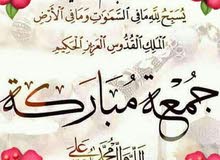 يُسَبِّحُ لِلَّهِ مَا فِي السَّمَوَتِ وَمَا فِي الْأَرْضِ
الْمَلِكِ الْقُدُّوسِ الْعَزِيزِ الْحَكِيمِ
جمعة مباركة
اللهم صل على محمد